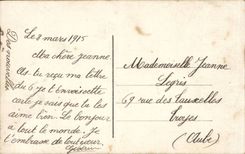 Des nouvelles
Le 2 mars 1915
Ma chère Jeanne.
As tu reçu ma lettre
du 6 je t'envoie cette
carte je sais que tu les
aime bien. Le bonjour
a tout le monde. Je
t'embrasse de tout coeur
Mademoiselle Jeanne
Legris
69 rue des tauxelles
troyes
(Aube)